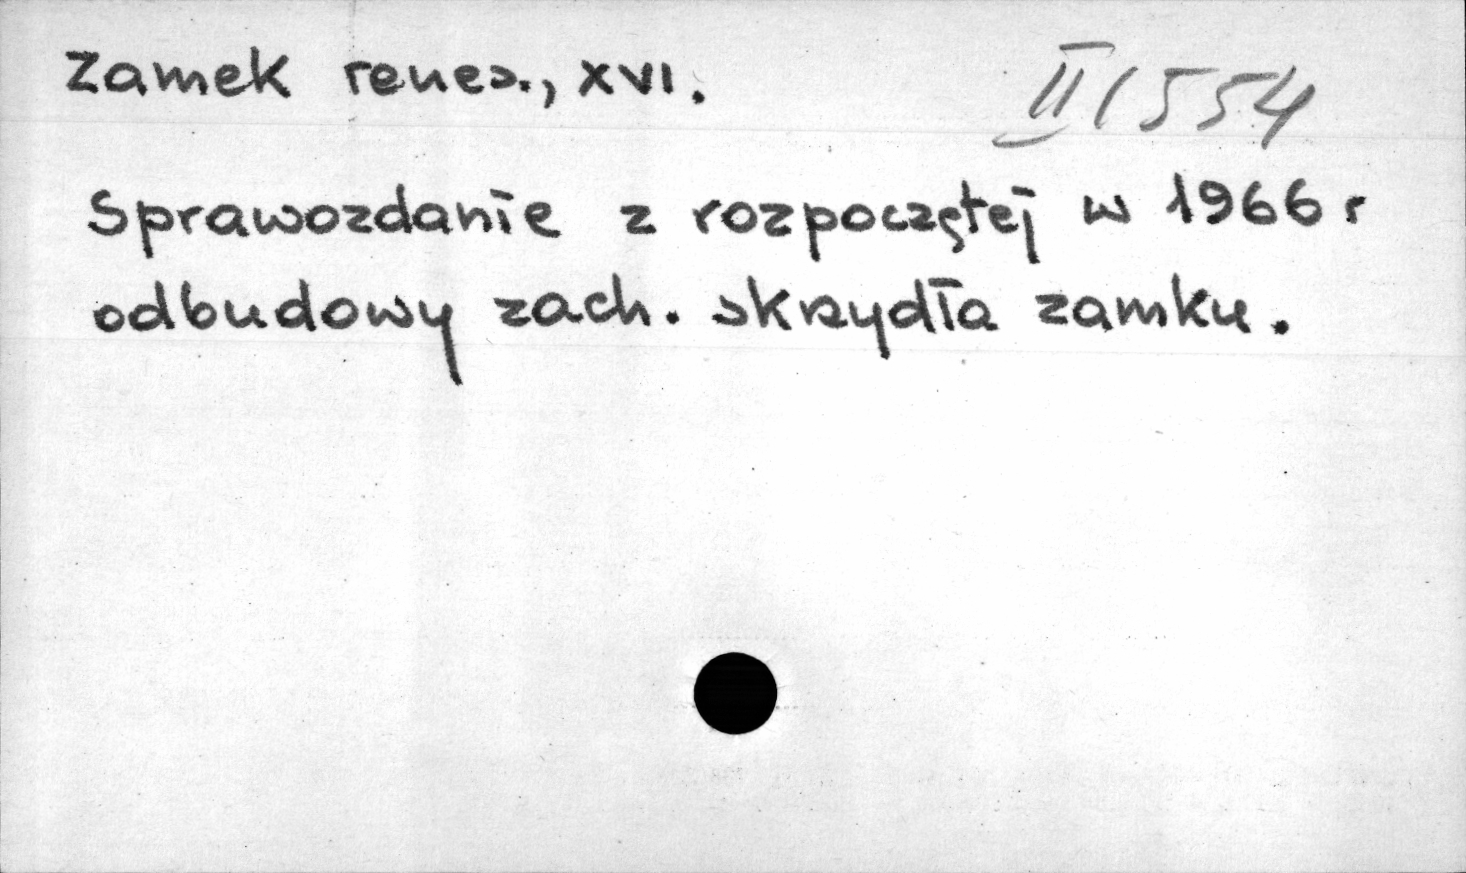 Zamek renes., XVI.
II/554
Sprawozdanie z rozpoczętej w 1966 r
odbudowy zach. skrzydła zamku.